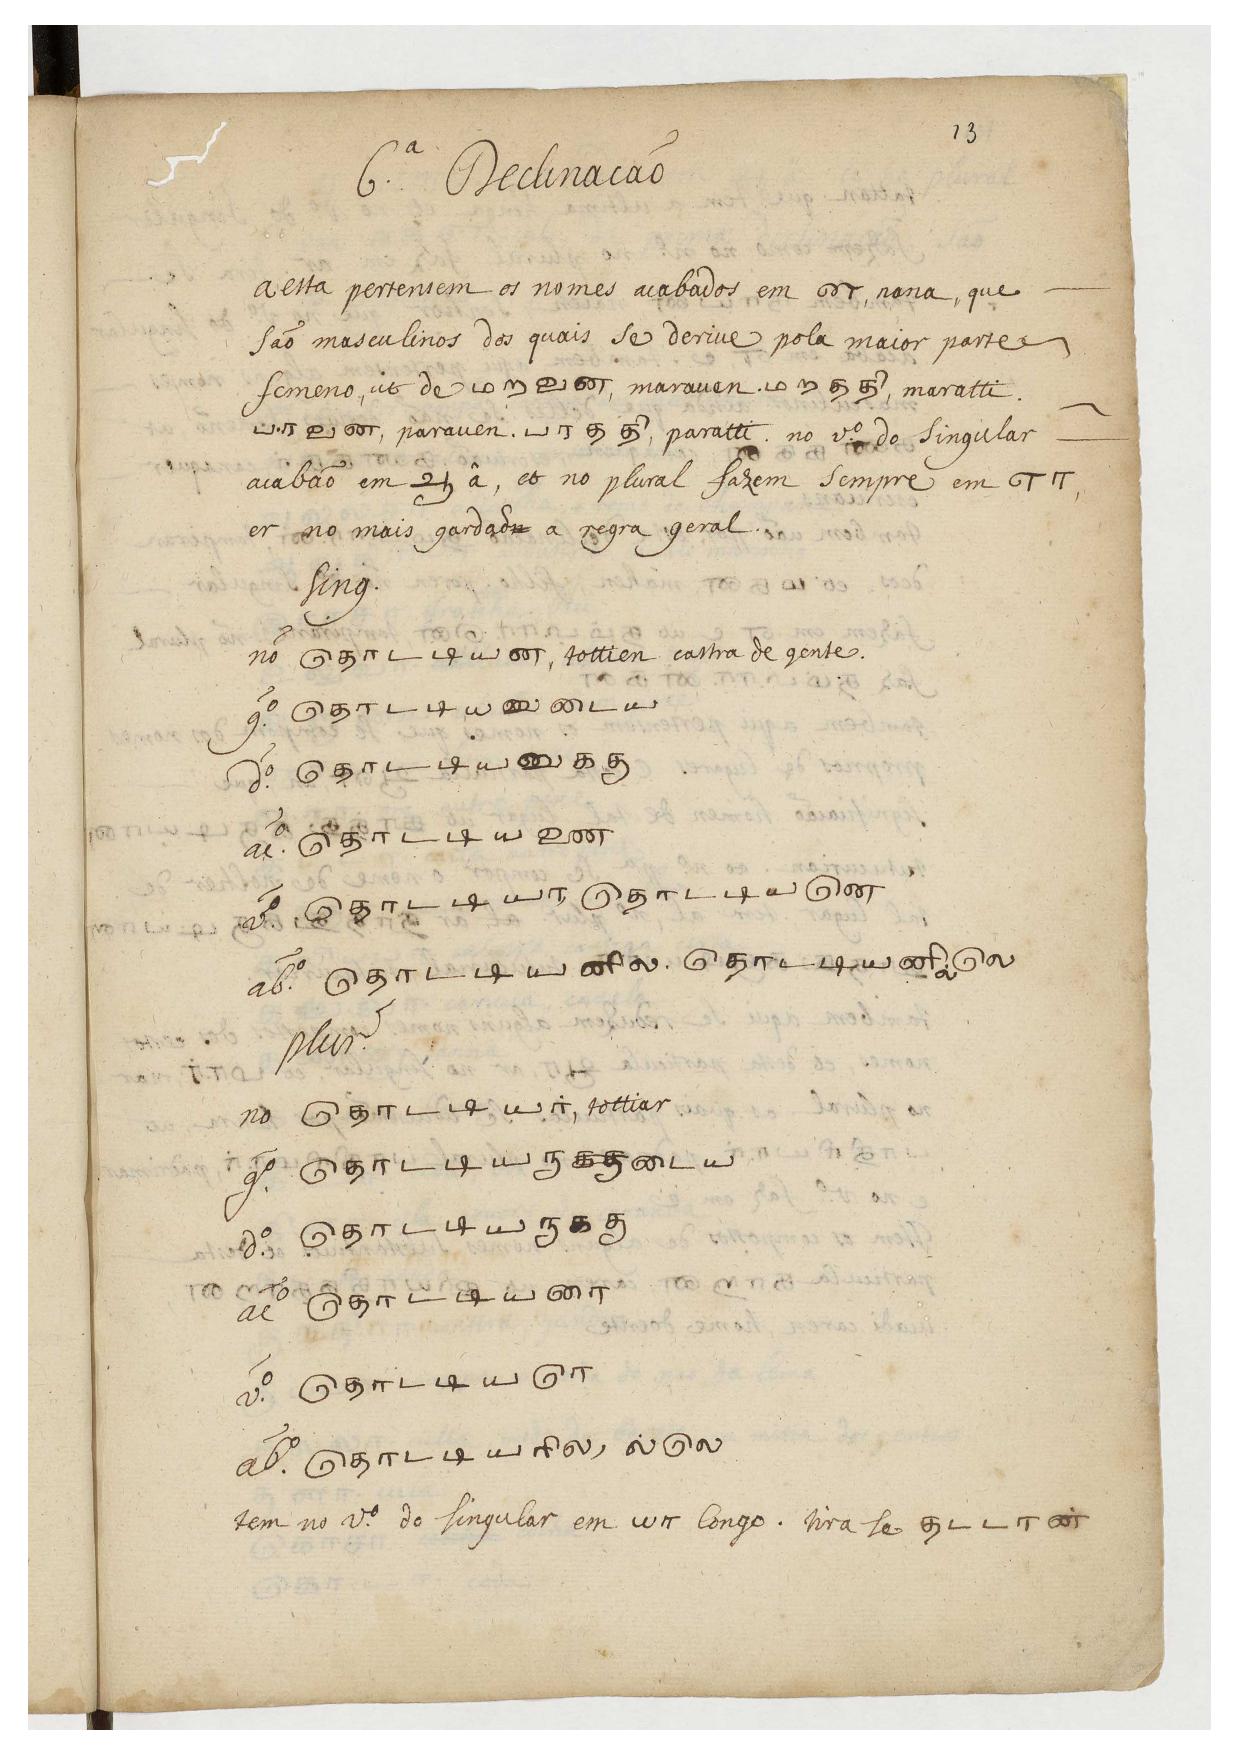 13
6.ª Declinacaõ
a esta pertensem os nomes acabados em ன, nana, que
saõ masculinos dos quais se derive pola maior parte
femeno, ut de மறவன, marauen. மறததி, maratti.
பரவன, parauen. பரததி, paratti. no v.º do singular
acabaõ em ஆ â, et no plural fazem sempre em ரா,
er no mais gardaõ a regra geral.
sing.
nõ தொடடியன, tottien castra de gente.
g.º தொடடியனுடைய
d.º தொடடியனுகது
ac.º தொடடியனை
v.º தொடடியா, தொடடியனெ
ab.º தொடடியனில. தொடடியனில்லெ
plur.
no தொடடியர், tottiar
g.º தொடடியருடைய
d.º தொடடியருகது
ac.º தொடடியரை
v.º தொடடியரெ
ab.º தொடடியரில, ல்லெ
tem no v.º do singular em யா longo. tira se தடடான்